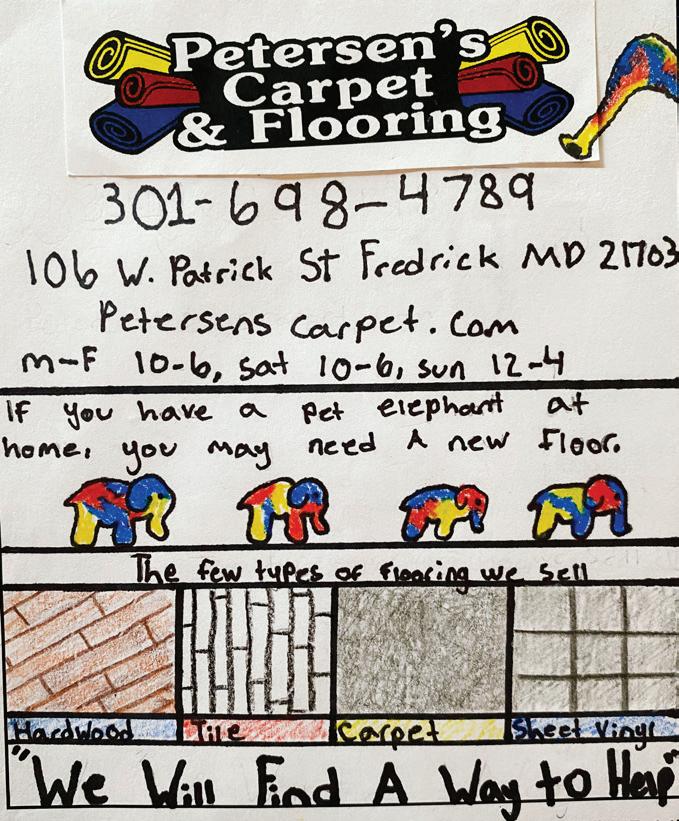 Petersen's
Carpet
& Flooring
301-698-4789
106 W. Patrick St Fredrick MD 21703
Petersens carpet.com
m-F 10-6, sat 10-6, sun 12-4
If you have a pet elephant at
home, you may need A new floor.
The few types of flooring we sell
Hardwood Tile Carpet Sheet Vinyl
"We Will Find A Way to Help"